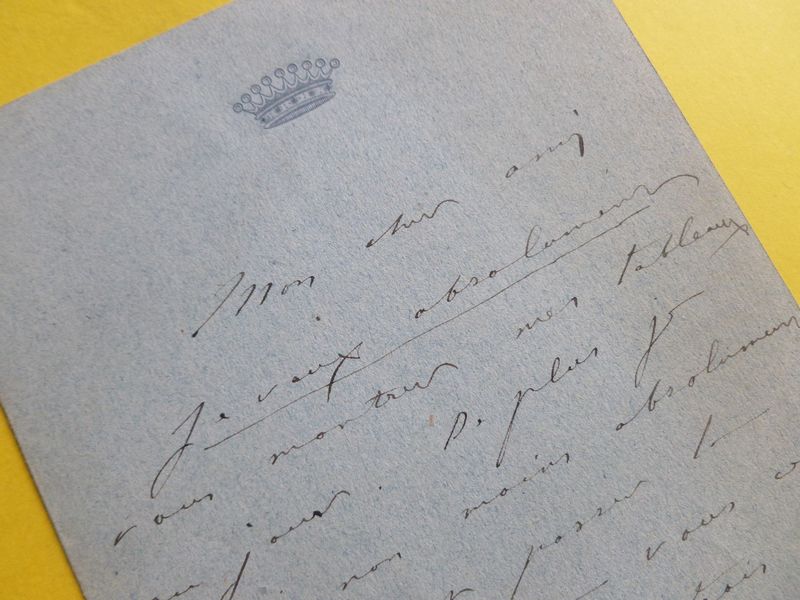 Mon cher ami
Je veux absolument
vous montrer mes tableaux
jour. De plus je
non moins absolument
passer la
vous